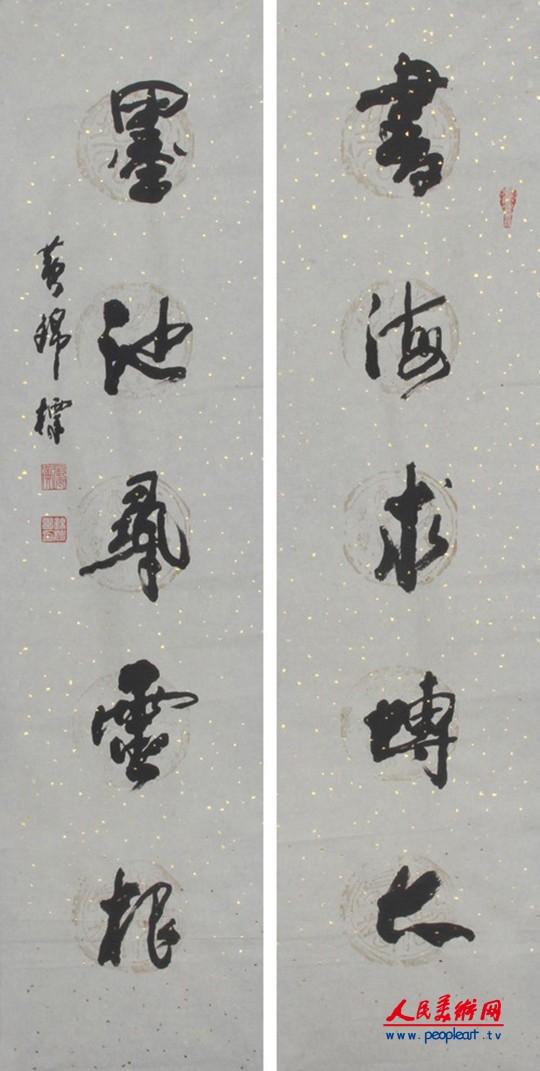 書海求博大
墨池尋靈根
黄錦
人民美术网
www.peopleart.tv